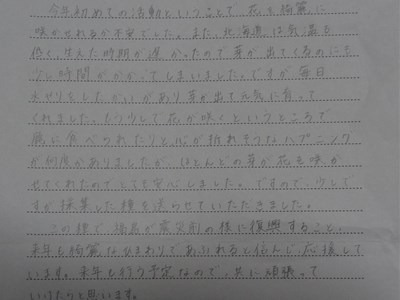 今年初めての活動ということで、花を綺麗に
咲かせれるか不安でした。また、北海道は気温も
低く、生えた時期が遅かったので芽が出てくるのにも
少し時間がかかってしまいました。ですが毎日
水やりをしたかいがあり芽が出て元気に育って
くれました。もう少しで花が咲くというところで
鹿に食べられたりと心が折れそうなハプニング
が何度かありましたが、ほとんどの芽が花を咲か
せてくれたのでとても安心しました。ですので、少しで
すが採集した種を送らせていただきました。
この種で福島が震災前の様に復興すること、
来年も綺麗なひまわりであふれると信じ、応援して
います。来年も行う予定なので、共に頑張って
いけたらと思います。